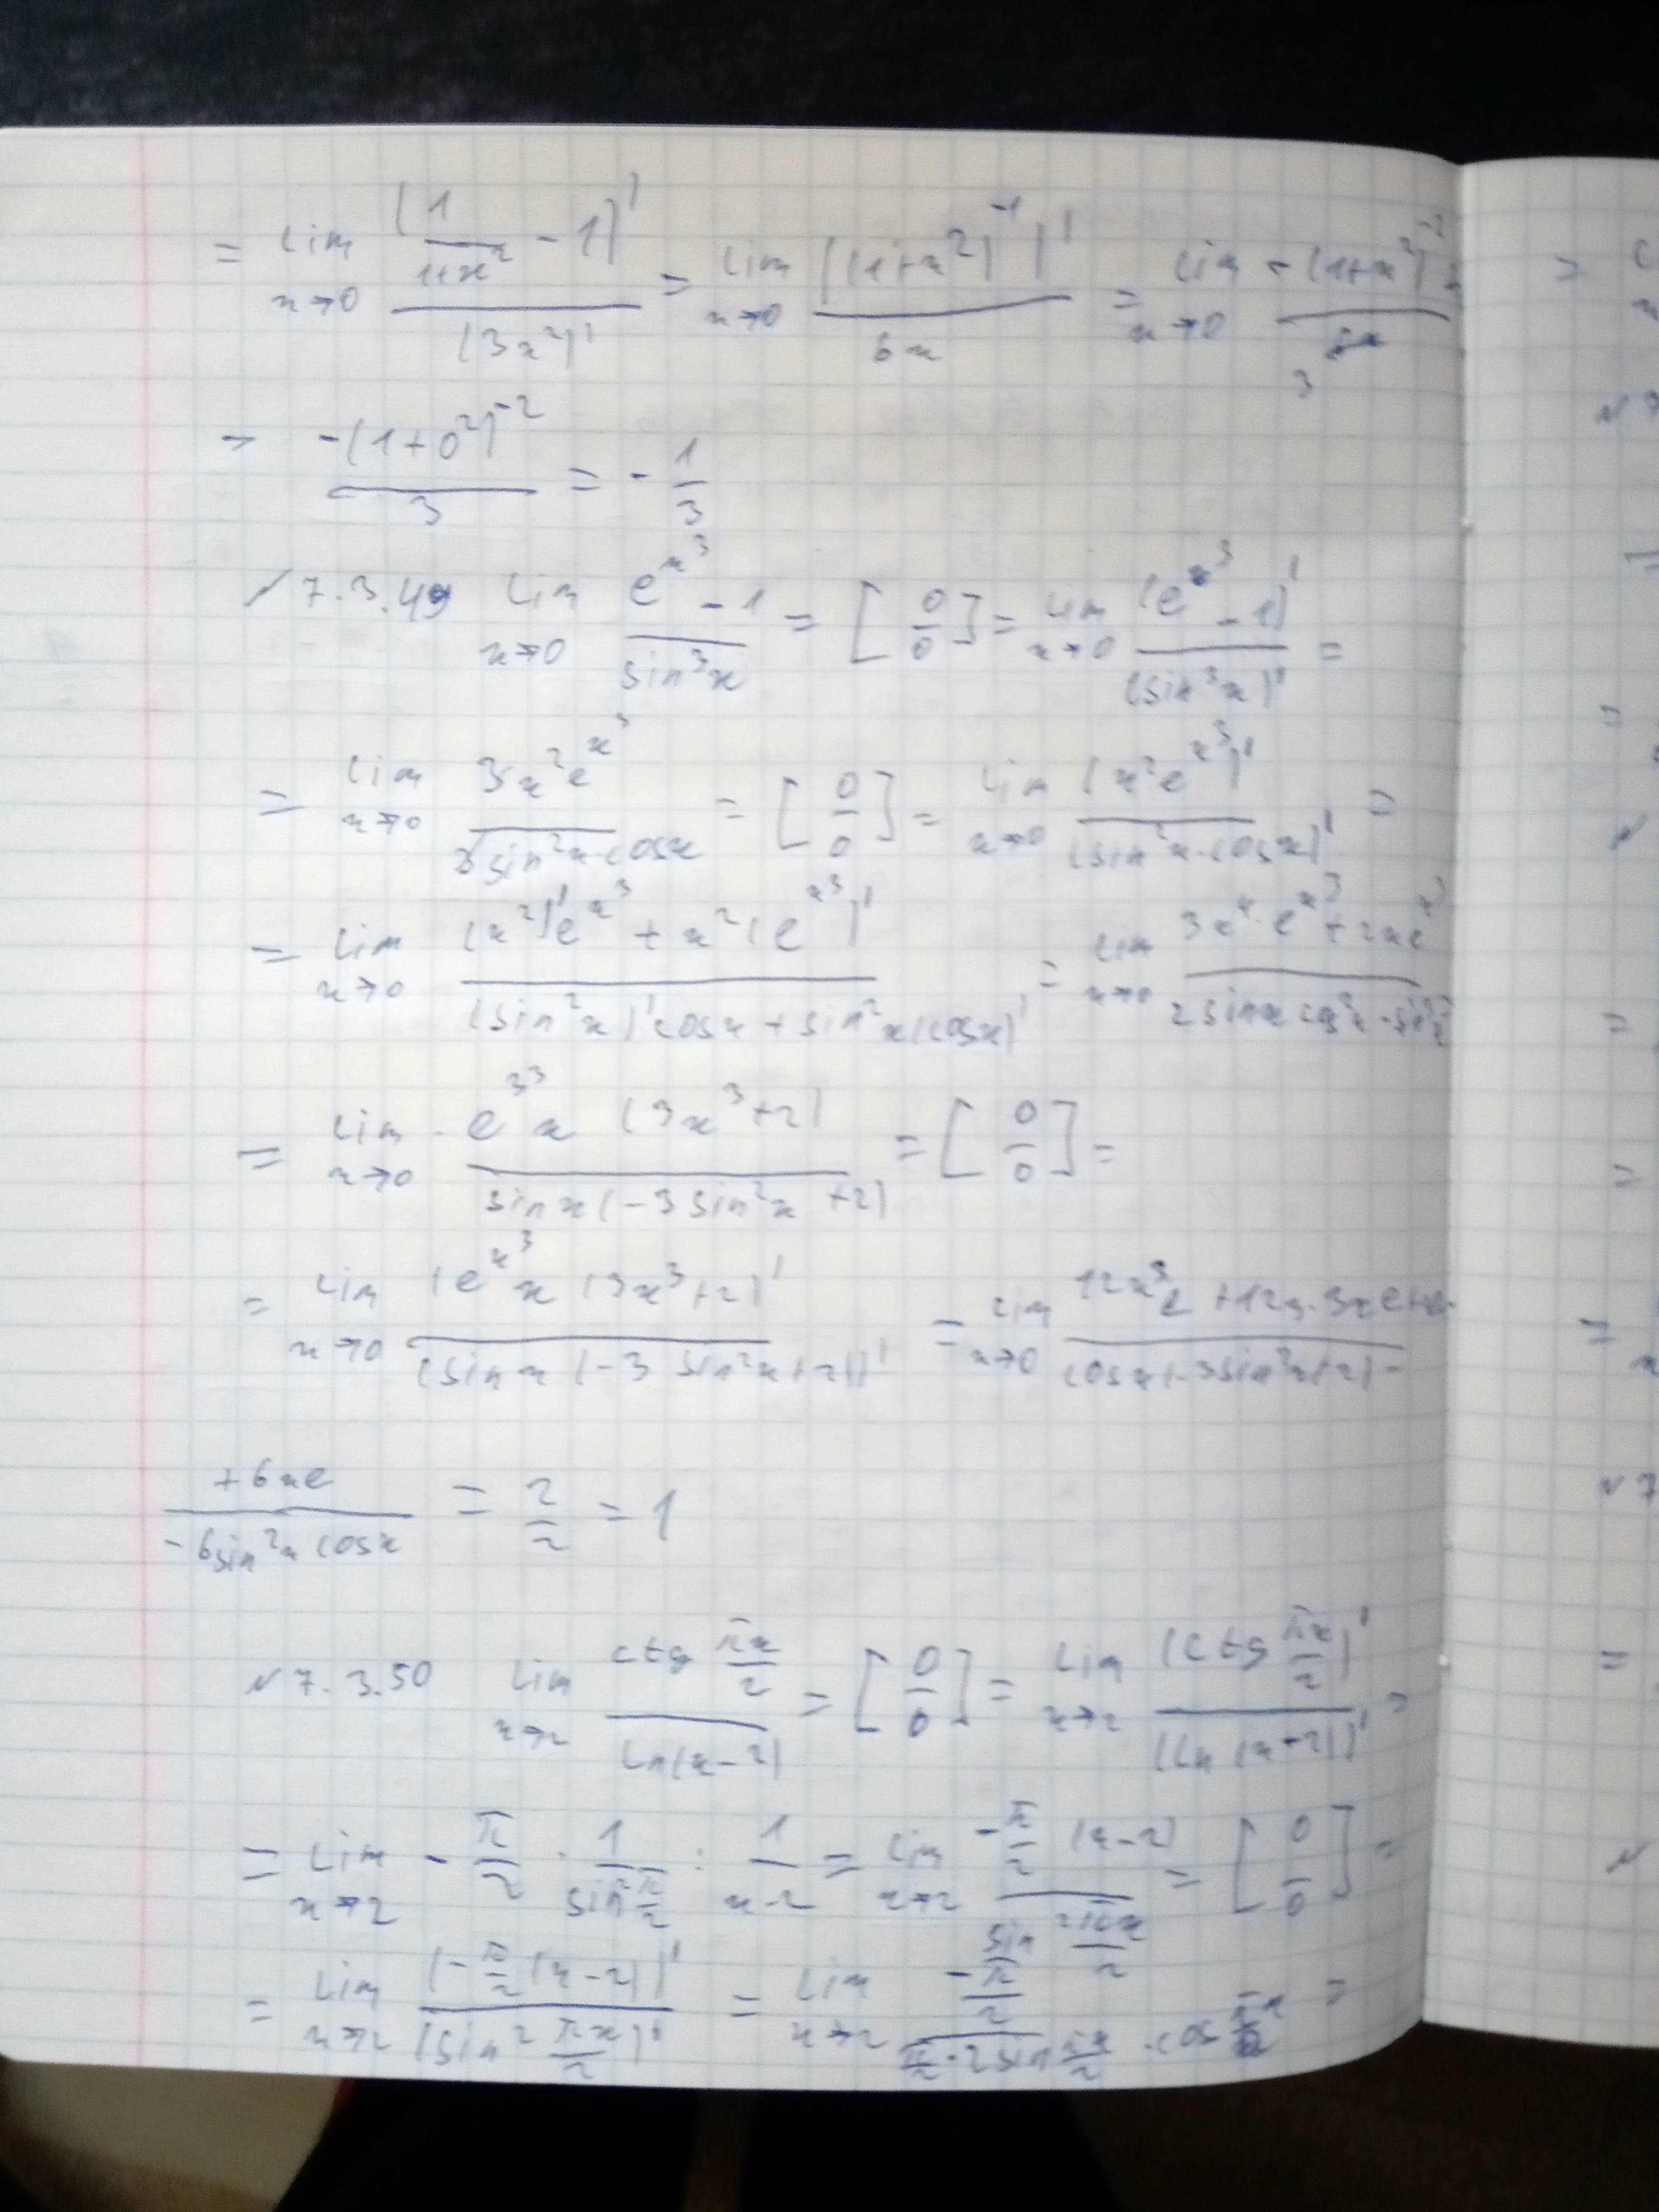 = lim x→0 (1/(1+x²) - 1)' / (3x²)' = lim x→0 ((1+x²)⁻¹)' / 6x = lim x→0 -(1+x²)⁻² / 3
= -(1+0²)⁻² / 3 = - 1/3
№7.3.49 lim x→0 (e^x³ - 1) / sin³x = [0/0] = lim x→0 (e^x³ - 1)' / (sin³x)' =
= lim x→0 3x²e^x³ / 3sin²x·cosx = [0/0] = lim x→0 (x²e^x³)' / (sin²x·cosx)' =
= lim x→0 ((x²)'e^x³ + x²(e^x³)') / ((sin²x)'cosx + sin²x(cosx)') = lim x→0 (3x⁴·e^x³ + 2xe^x³) / (2sinx cos²x - sin³x)
= lim x→0 e^3³ x (3x³+2) / sinx(-3sin²x+2) = [0/0] =
= lim x→0 (e^x³ x (3x³+2)' / (sinx(-3sin²x+2))' = lim x→0 12x³e / cosx(-3sin²x+2) -
+6xe / -6sin²x cosx = 2/2 = 1
№7.3.50 lim x→2 ctg πx/2 / ln(x-2) = [0/0] = lim x→2 (ctg πx/2)' / (ln(x+2))' =
= lim x→2 - π/2 · 1/sin² π/2 : 1/x-2 = lim x→2 -π/2 (x-2) / sin² πx/2 = [0/0] =
= lim x→2 (-π/2(x-2))' / (sin² πx/2)' = lim x→2 -π/2 / π/2·2sin πx/2 ·cos πx/2 =